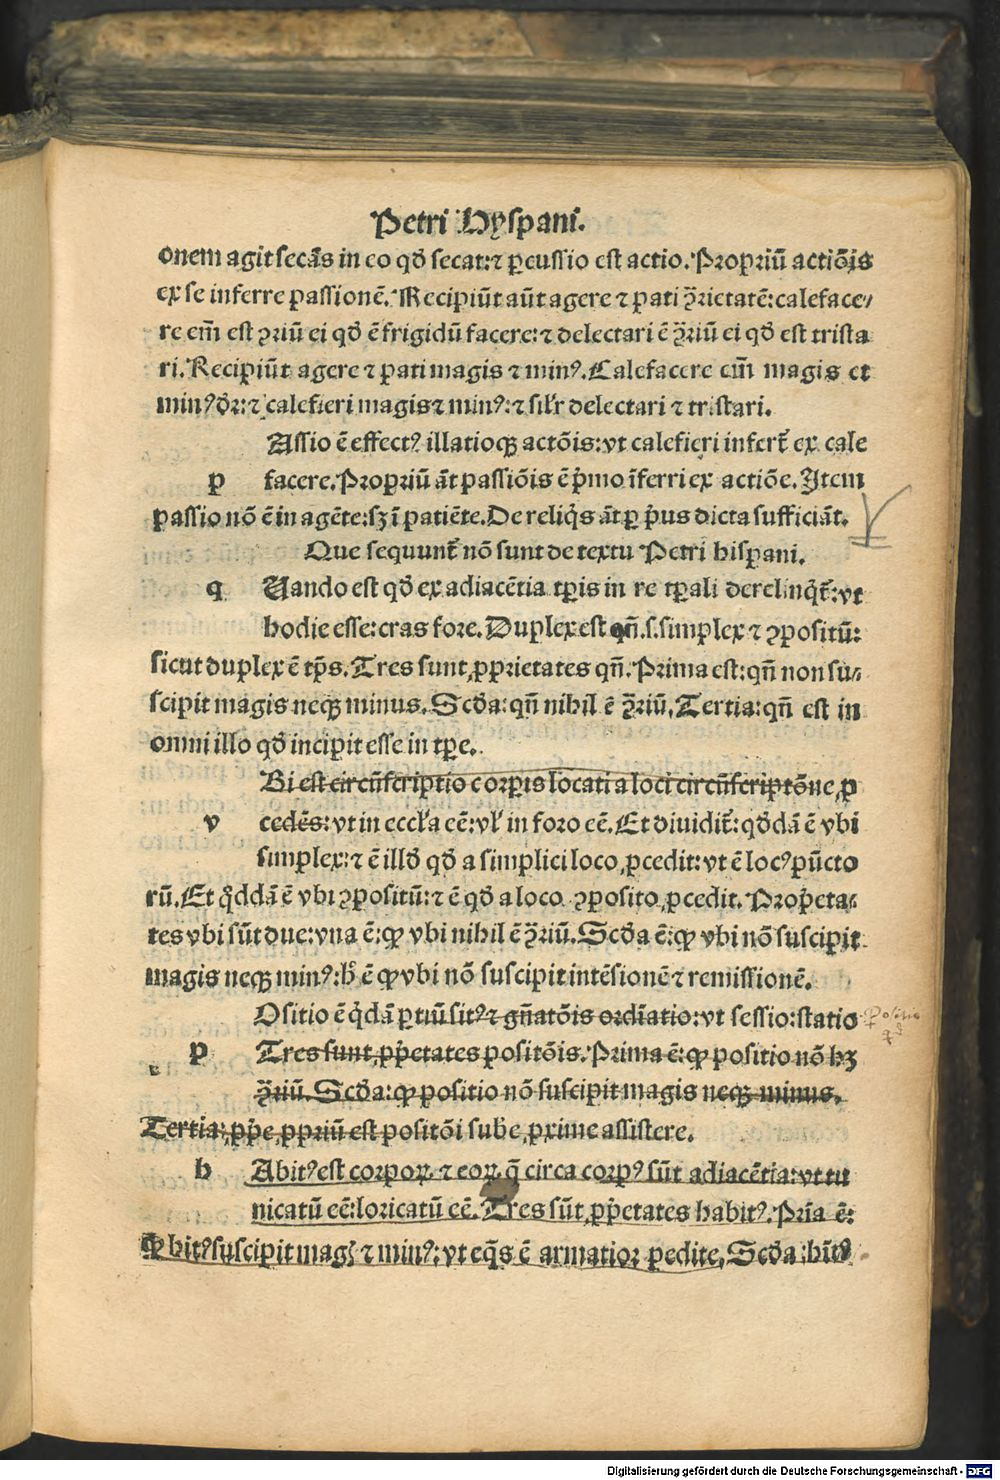 Petri Hyspani.
onem agit secãs in eo qđ secat: ⁊ ꝑcussio est actio. Propriũ actiõis
ex se inferre passionẽ. Recipiũt aũt agere ⁊ pati ꝯ̃rietatẽ: caleface⸗
re em̃ est ꝯriũ ei qđ ẽ frigidũ facere: ⁊ delectari ẽ ꝯ̃riũ ei qđ est trista
ri. Recipiũt agere ⁊ pati magis ⁊ minꝰ. Calefacere em̃ magis et
minꝰ dr̃: ⁊ calefieri magis ⁊ minꝰ: ⁊ silr̃ delectari ⁊ tristari.
Assio ẽ effectꝰ illatioqꝫ actõis: vt calefieri infert̃ ex cale
p facere. Propriũ ãt passiõis ẽ p̃mo ĩferri ex actiõe. Item
passio nõ ẽ in agẽte: sꝫ ĩ patiẽte. De reliq̃s ãt ꝑ p̃us dicta sufficiãt.
Que sequunt̃ nõ sunt de textu Petri hispani.
q Uando est qđ ex adiacẽtia tꝑis in re tꝑali derelinq̃t̃: vt
hodie esse: cras fore. Duplex est qñ .s. simplex ⁊ ꝯpositũ:
sicut duplex ẽ tp̃s. Tres sunt ꝓprietates qñ. Prima est: qñ non su⸗
scipit magis neqꝫ minus. Scđa: qñ nihil ẽ ꝯ̃riũ. Tertia: qñ est in
omni illo qđ incipit esse in tꝑe.
Bi est circũscriptio corꝑis locati a loci circũscriptõne ꝓ
v cedẽs: vt in eccl̃a eẽ: vl̃ in foro eẽ. Et diuidit̃: qđdã ẽ vbi
simplex: ⁊ ẽ illđ qđ a simplici loco ꝓcedit: vt ẽ locꝰ pũcto
rũ. Et q̃ddã ẽ vbi ꝯpositũ: ⁊ ẽ qđ a loco ꝯposito ꝓcedit. Prop̃eta⸗
tes vbi sũt due: vna ẽ: ꝙ vbi nihil ẽ ꝯ̃riũ. Scđa ẽ: ꝙ vbi nõ suscipit
magis neqꝫ minꝰ: h̃ ẽ ꝙ vbi nõ suscipit intẽsionẽ ⁊ remissionẽ.
Ositio ẽ q̃dã ꝑtiũ sitꝰ ⁊ gñatõis ordĩatio: vt sessio: statio
Positio
p Tres sunt ꝓp̃etates positõis. Prima ẽ: ꝙ positio nõ hꝫ
ꝯ̃riũ. Scđa: ꝙ positio nõ suscipit magis neqꝫ minus.
Tertia: ꝓp̃e ꝓpriũ est positõi sub̃e ꝓxime assistere.
h Abitꝰ est corpoꝝ ⁊ eoꝝ q̃ circa corpꝰ sũt adiacẽtia: vt tu
nicatũ eẽ: loricatũ eẽ. Tres sũt ꝓp̃etates habitꝰ. Prĩa ẽ:
ꝙ hĩtꝰ suscipit mag̃ ⁊ minꝰ: vt eq̃s ẽ armatior pedite. Scđa: hĩtꝰ
Digitalisierung gefördert durch die Deutsche Forschungsgemeinschaft - DFG